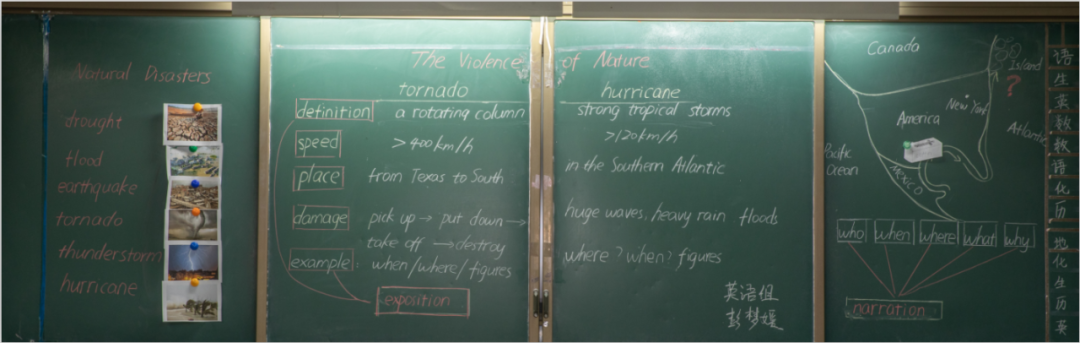 Natural Disasters
drought
flood
earthquake
tornado
thunderstorm
hurricane
The Violence of Nature
tornado hurricane
definition a rotating column strong tropical storms
speed >400km/h >120km/h
place from Texas to South in the Southern Atlantic
damage pick up → put down → huge waves, heavy rain floods
take off → destroy
example when/where/figures where? when? figures
exposition
英语组
彭梦媛
Canada
Island
?
New York
America
Atlantic
Pacific
ocean
MEXICO
who when where what why
narration
语
生
英
数
数
语
化
历
地
化
生
历
英